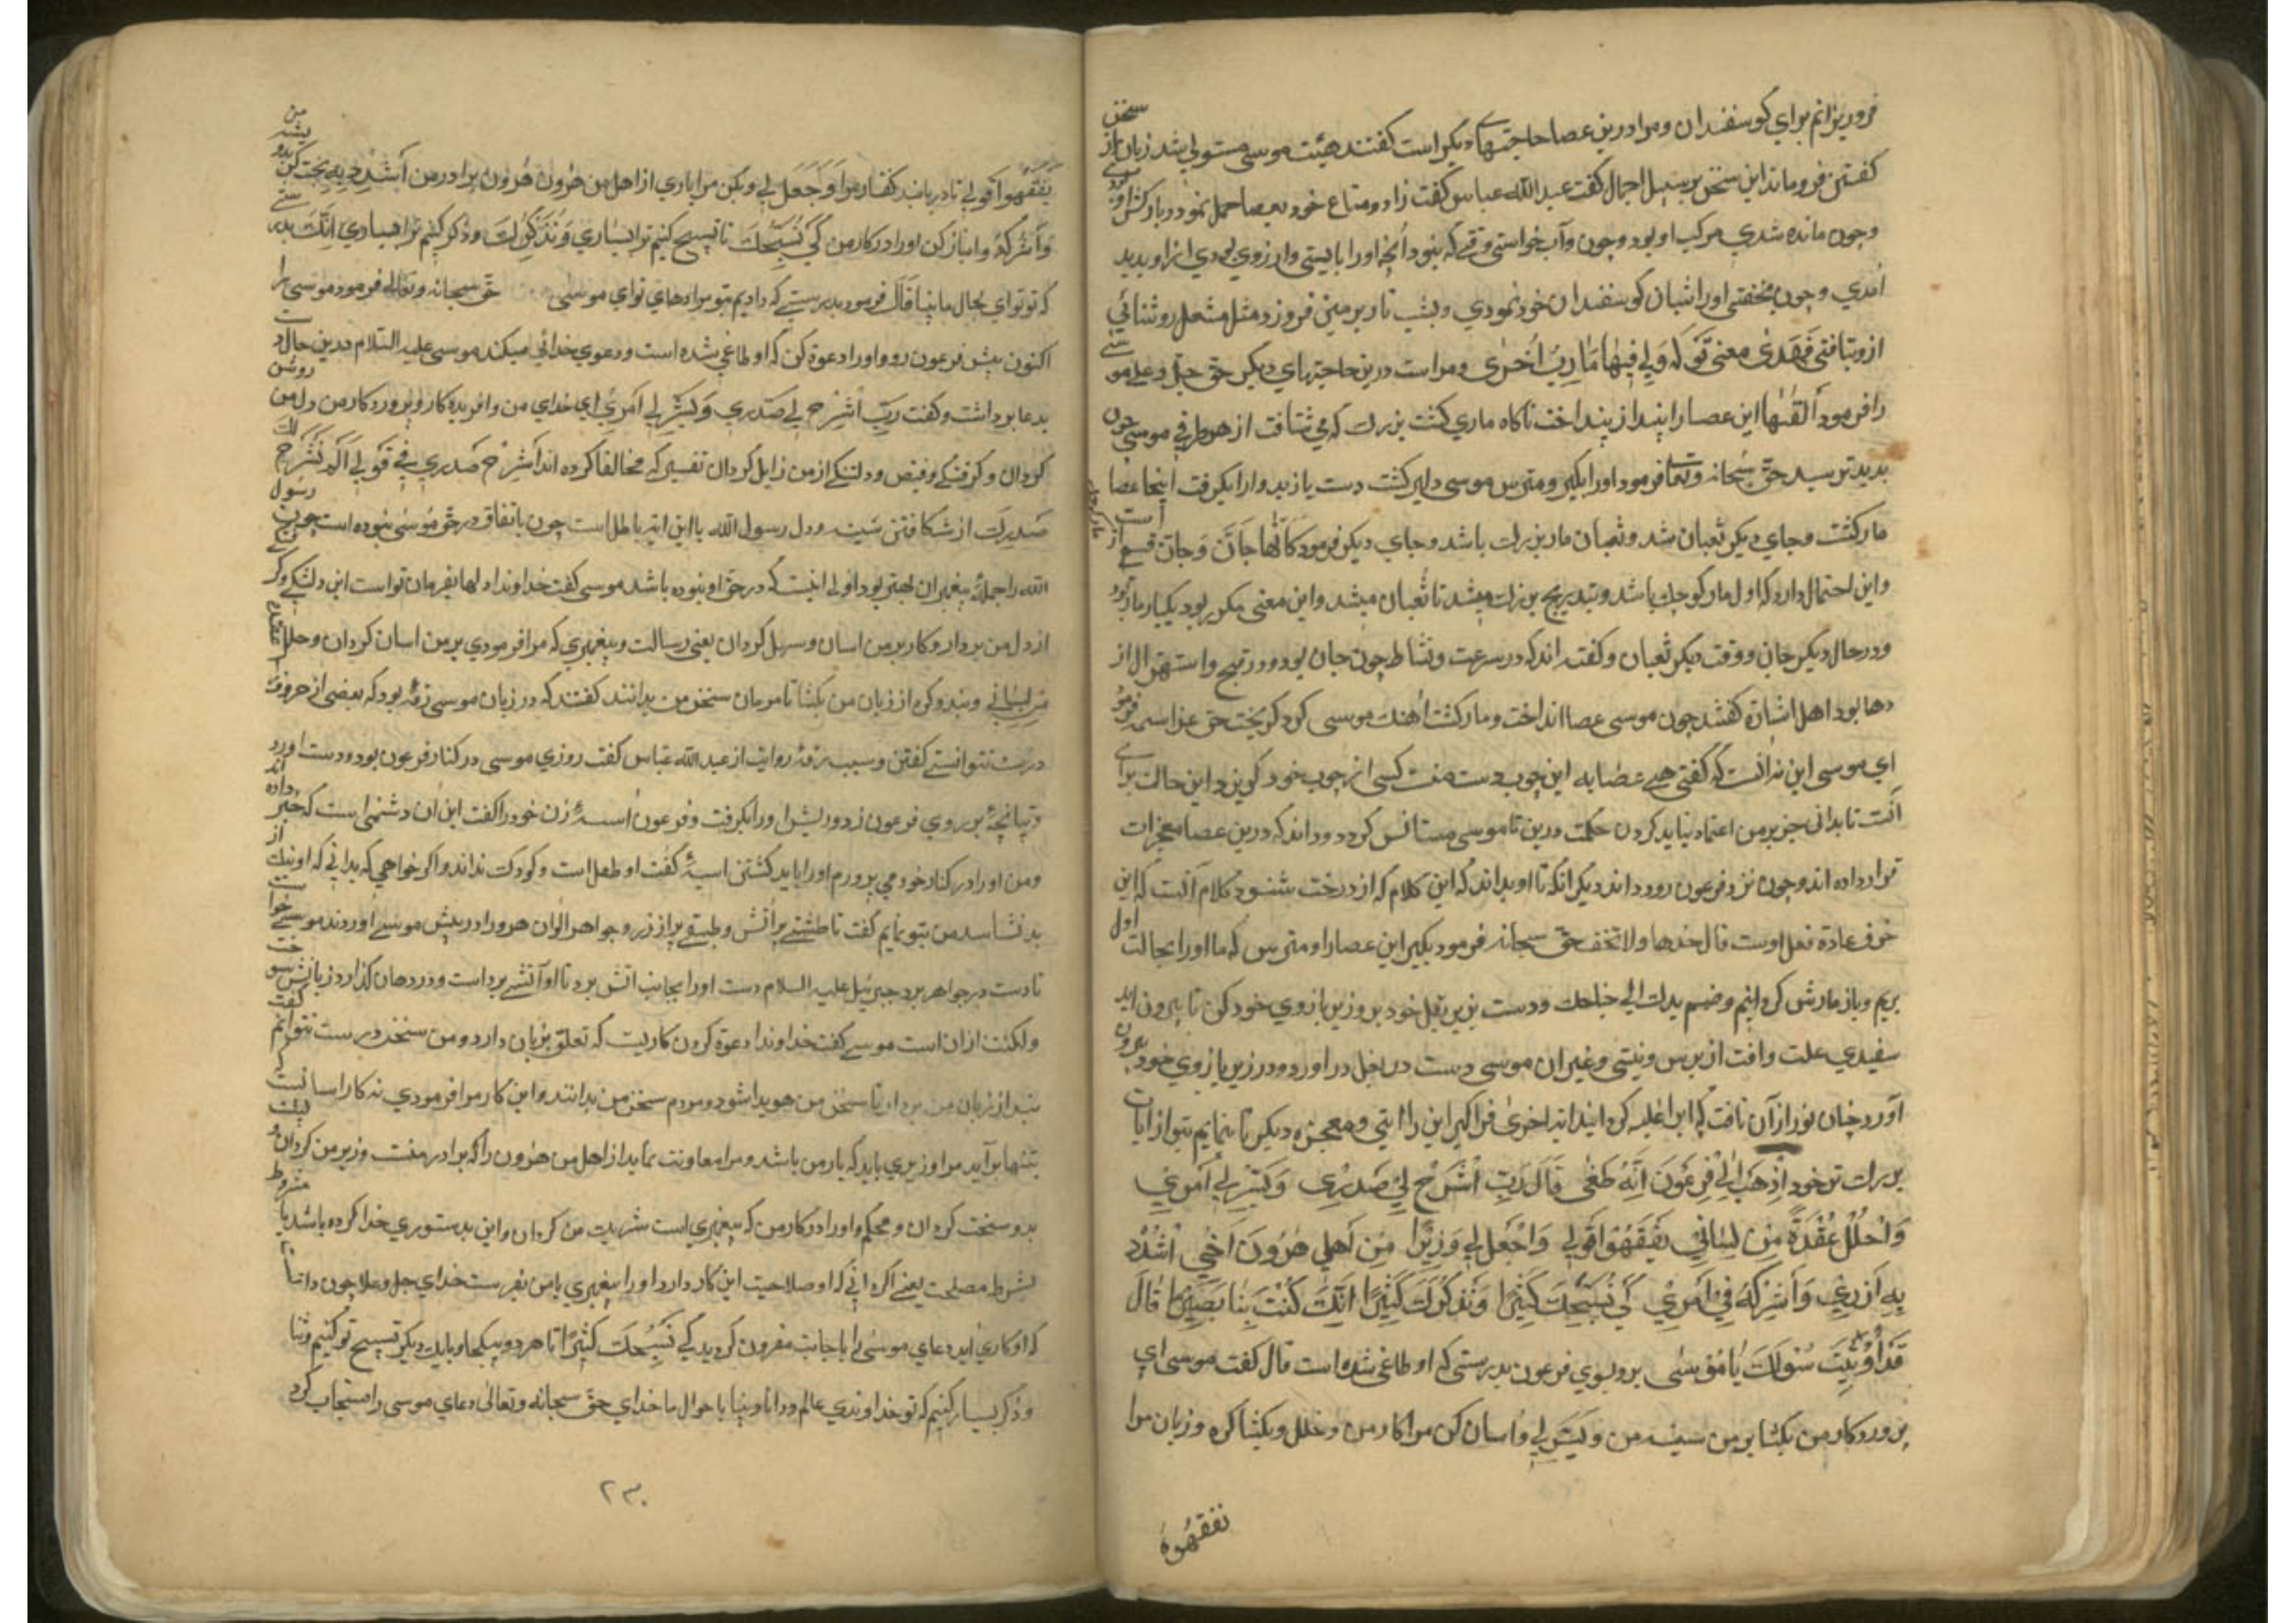 فروریزانم برای گوسفندان ومرا درین عصا حاجتهاء دیکر است کفتند هیئت موسی مستولی شد زبان از سخن
کفتن فروماند این سخن بر سبیل اجمال کفت عبد الله عباس کفت زاد ومتاع خود بعصا حمل نمودی
وچون مانده شدی مرکب او بود وچون وآب خواستی وقتی که نبود انچه اورا بایستی وارزوی بودی ازاو بدید
آمدی وچون بخفتی اورا شبان کوسفندان خود نمودی وبشب تاریر زمین فروزد مثل مشعل روشنائی
ازو بتافتی فهذی معنی قوله ولی فیها مارب اخری ومراست درین حاجتهای دیکر حق جل وعلا موسی
را فرمود القها این عصا را بینداز بینداخت ناکاه ماری کشت بزرک که می شتافت از هر طرفی موسی چون
بدید ترسید حق سبحانه وتعا فرمود اورا بکیر ومترس موسی دلیر کشت دست یازید واورا بکرفت اینجا عصا
مار کشت وجای دیکر ثعبان شد وثعبان مار بزرک باشد وجای دیکر فرمود کانها جان وجان قسمی از
واین احتمال دارد که اول مار کوچک باشد وبتدریج بزرک میشد تا ثعبان میشد واین معنی مکرر بود یکبار مار بود
ودر حال دیکر جان ووقت دیکر ثعبان وکفته اند که در سرعت ونشاط چون جان بود ودر قبح واستهوال از
دها بود اهل اشارة کفتند چون موسی عصا انداخت ومار کشت اهنک موسی کرد کریخت حق عز اسمه فرمود
ای موسی این نه انست که کفتی هی عصایه این چوب دست منست کسی از چوب خود کریزد این حالت برای
آنست تا بدانی جز بر من اعتماد نباید کردن حکمت درین تا موسی مستانس کردد وداند که درین عصا معجزات
قرار داده اند وچون نزد فرعون رود داند دیکر انکه تا او بداند که این کلام که از درخت شنود کلام آنست که این
خرق عادة فعل اوست قال خذها ولا تخف حق سبحانه فرمود بکیر این عصا را ومترس که ما اورا بحالت اول
بریم وباز مارش کردانیم وضم یدک الی جناحک ودست بزیر بغل خود بر وزیر بازوی خود کن تا بیرون اید
سفیدی علت وافت از برص ونیستی وغیر ان موسی دست در بغل در اورد ودر زیر بازوی خود بیرون
آورد چنان نور از آن تافت که ابر اغلبه کردانید ایة اخری فرا کیر این را ایتی ومعجزه دیکر تا بنمایم بتو از ایات
بزرک تر خود اذهب الی فرعون انه طغی قال رب اشرح لی صدری ویسر لی امری
واحلل عقدة من لسانی یفقهوا قولی واجعل لی وزیرا من اهلی هرون اخی اشدد
به ازری واشرکه فی امری کی نسبحک کثیرا ونذکرک کثیرا انک کنت بنا بصیرا قال
قد اوتیت سؤلک یا موسی برو بسوی فرعون بدرستی که او طاغی شده است قال کفت موسی ای
پروردکار من بکشا بر من سینه من ویسر لی واسان کن مرا کار من وحلل وبکشا کره وزبان مرا
نفقهوه
یفقهوا قولی تا دریابند کفتار مرا واجعل لی وبکن مرا یاری از اهل من هرون هرون برادر من اشدد به
واشرکه وانباز کن اورا در کار من کی نسبحک تا تسبیح کنیم ترا بسیاری ونذکرک وذکر کنیم ترا بسیاری انک
که تو توای بحال ما بینا قال فرمود بدرستی که دادیم بتو مرادهای توای موسی حق سبحانه وتعالی فرمود موسی را
اکنون پیش فرعون رو واورا دعوة کن که او طاغی شده است ودعوی خدائی میکند موسی علیه السلام درین حال دست
بدعا برداشت وکفت رب اشرح لی صدری ویسر لی امری ای خدای من وافریدکار وپروردکار من دل من روشن
کردان وکرفتکی وقبض ودلتنکی از من زایل کردان تفسیر که مخالفا کرده اند اشرح صدری فی قولی الم نشرح لک
صدرک از شکافتن سینه ودل رسول الله با این ایة باطل است چون باتفاق در حق موسی نبوده است چون رسول
الله را جمله پیغمبران بهتر بود اولی انست که در حق او نبوده باشد موسی کفت خداوندا دلها بفرمان تو است این دلتنکی وکرفتکی
از دل من بردار وکار بر من اسان وسهل کردان یعنی رسالت وپیغمبری که مرا فرمودی بر من اسان کردان واحلل عقدة
من لسانی وبند وکره از زبان من بکشا تا مردمان سخن من بدانند کفتند که در زبان موسی رته بود که بعضی از حروف
درست نتوانستی کفتن وسبب رته روایت از عبد الله عباس کفت روزی موسی در کنار فرعون بود ودست اورد
وتپانچه بر روی فرعون زد وریش اورا بکرفت وفرعون اسیه زن خود را کفت این آن دشمنی است که خبر داده اند
ومن اورا در کنار خود می پرورم اورا باید کشتن اسیه کفت او طفل است وکودک نداند واکر خواهی که بدانی که او نیک از
بد نشناسد من بتو نمایم کفت تا طشتی پر آتش وطبقی پر از زر وجواهر الوان هر دو را در پیش موسی اوردند موسی خواست
تا دست در جواهر برد جبرئیل علیه السلام دست اورا بجانب اتش برد تا او آتش برداشت ودر دهان کذارد زبانش سوخت
ولکنت ازان است موسی کفت خداوندا دعوة کردن کاریست که تعلق بزبان دارد ومن سخن درست نتوانم کفت
بند از زبان من بردار تا سخن من هویدا شود ومردم سخن من بدانند واین کار مرا فرمودی نه کار اسانیست که
بتنها برآید مرا وزیری باید که یار من باشد ومرا معاونت نماید از اهل من هرون را که برادر منست وزیر من کردان
بدو سخت کردان ومحکم واورا در کار من که پیغمبری است شریک من کردان واین بدستوری خدا کرده باشد یا مشروط
بشرط مصلحت یعنی اکر دانی که او صلاحیت این کار دارد اورا بپیغمبری با من بفرست خدای جل وعلا چون دانست
که او کاری اید دعای موسی را با جابت مقرون کردید کی نسبحک کثیرا تا هر دو بیکجا وبایک دیکر تسبیح تو کنیم وثنا
وذکر بسیار کنیم که تو خداوندی عالم ودانا وبینا باحوال ما خدای حق سبحانه وتعالی دعای موسی را مستجاب کرد
۲۳۰